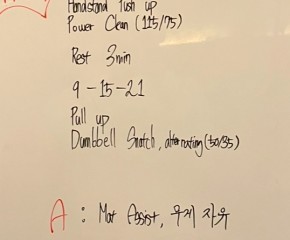 Handstand Push up
Power Clean (115/75)
Rest 3min
9-15-21
Pull up
Dumbbell Snatch, alternating (50/35)
A : Mat Assist, 무게 자유